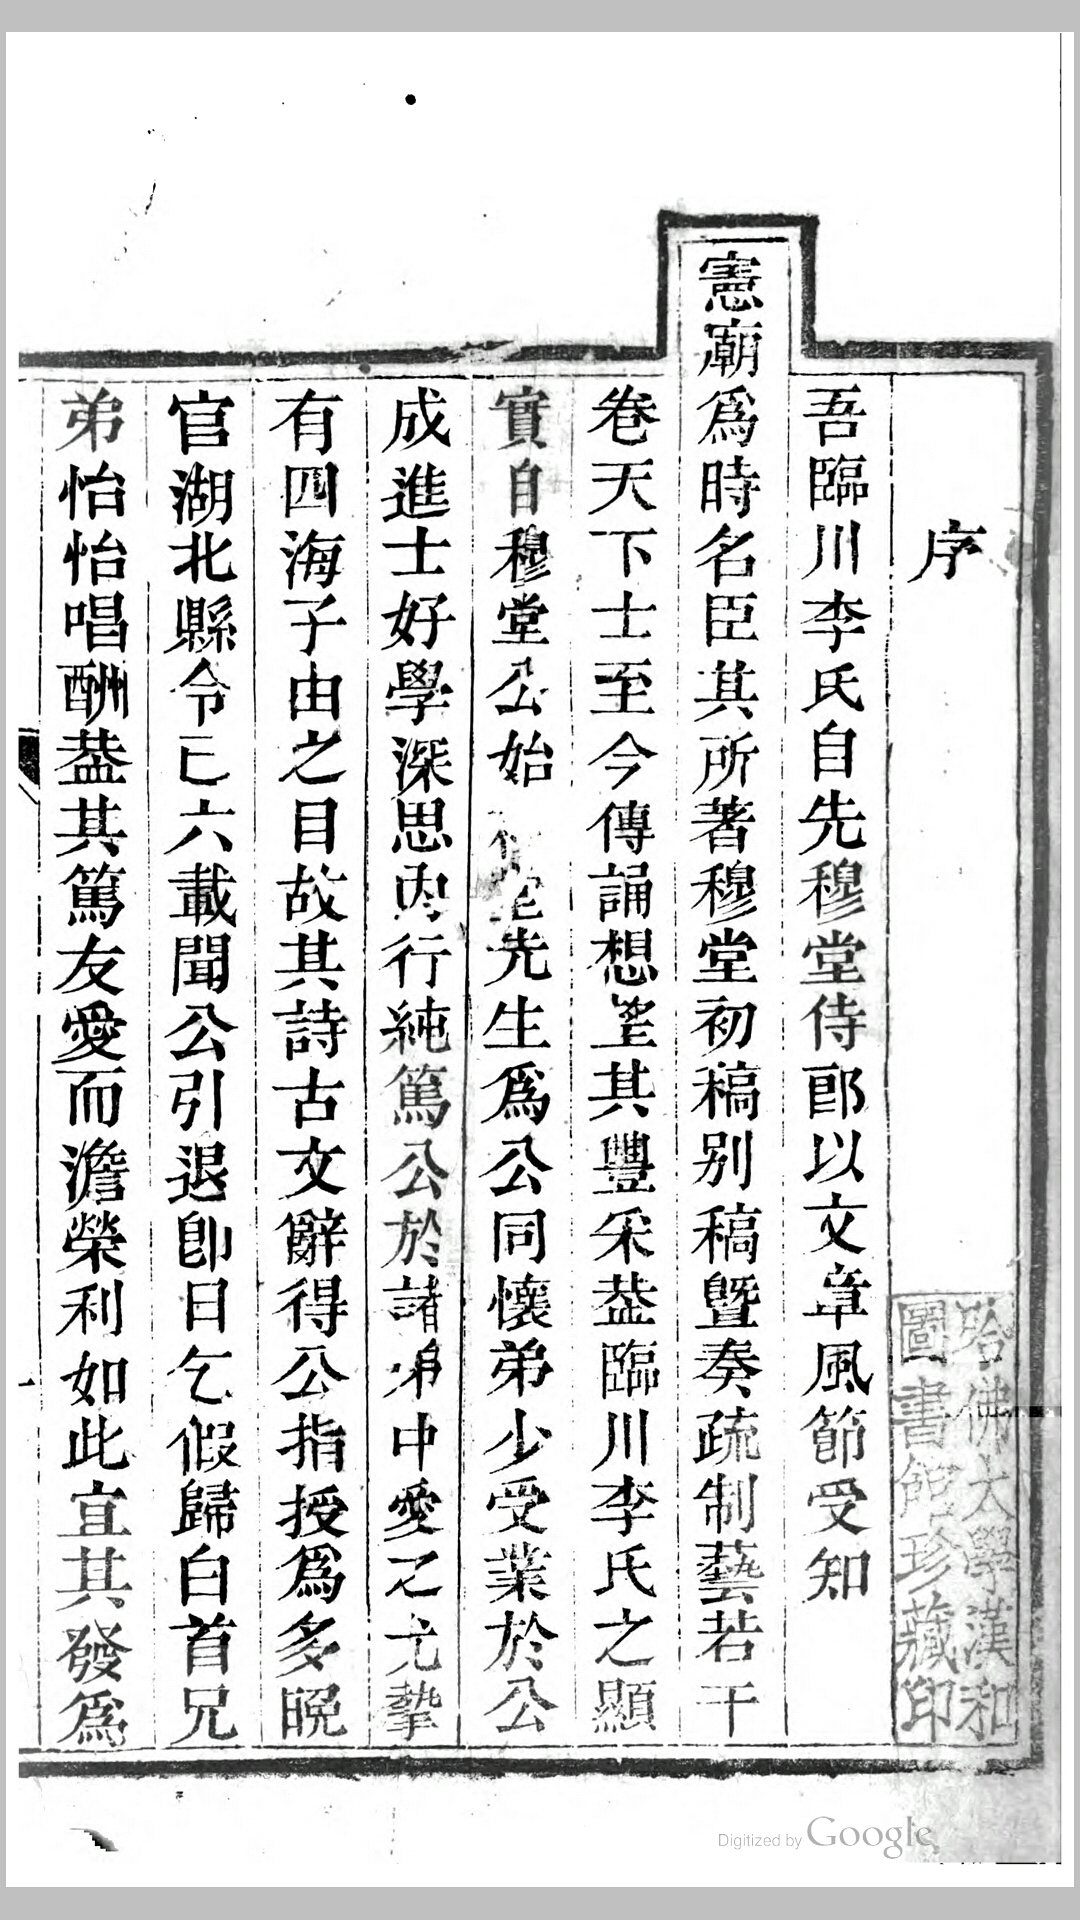 序
吾臨川李氏自先穆堂侍郎以文章風節受知
憲廟爲時名臣其所著穆堂初稿別稿曁奏疏制藝若干
卷天下士至今傳誦想望其豐采葢臨川李氏之顯
實自穆堂公始 先生爲公同懷弟少受業於公
成進士好學深思內行純篤公於諸弟中愛之尤摯
有四海子由之目故其詩古文辭得公指授爲多晩
官湖北縣令已六載聞公引退卽日乞假歸白首兄
弟怡怡唱酬葢其篤友愛而澹榮利如此宜其發爲
哈佛大學漢和
圖書館珍藏印
Digitized by Google